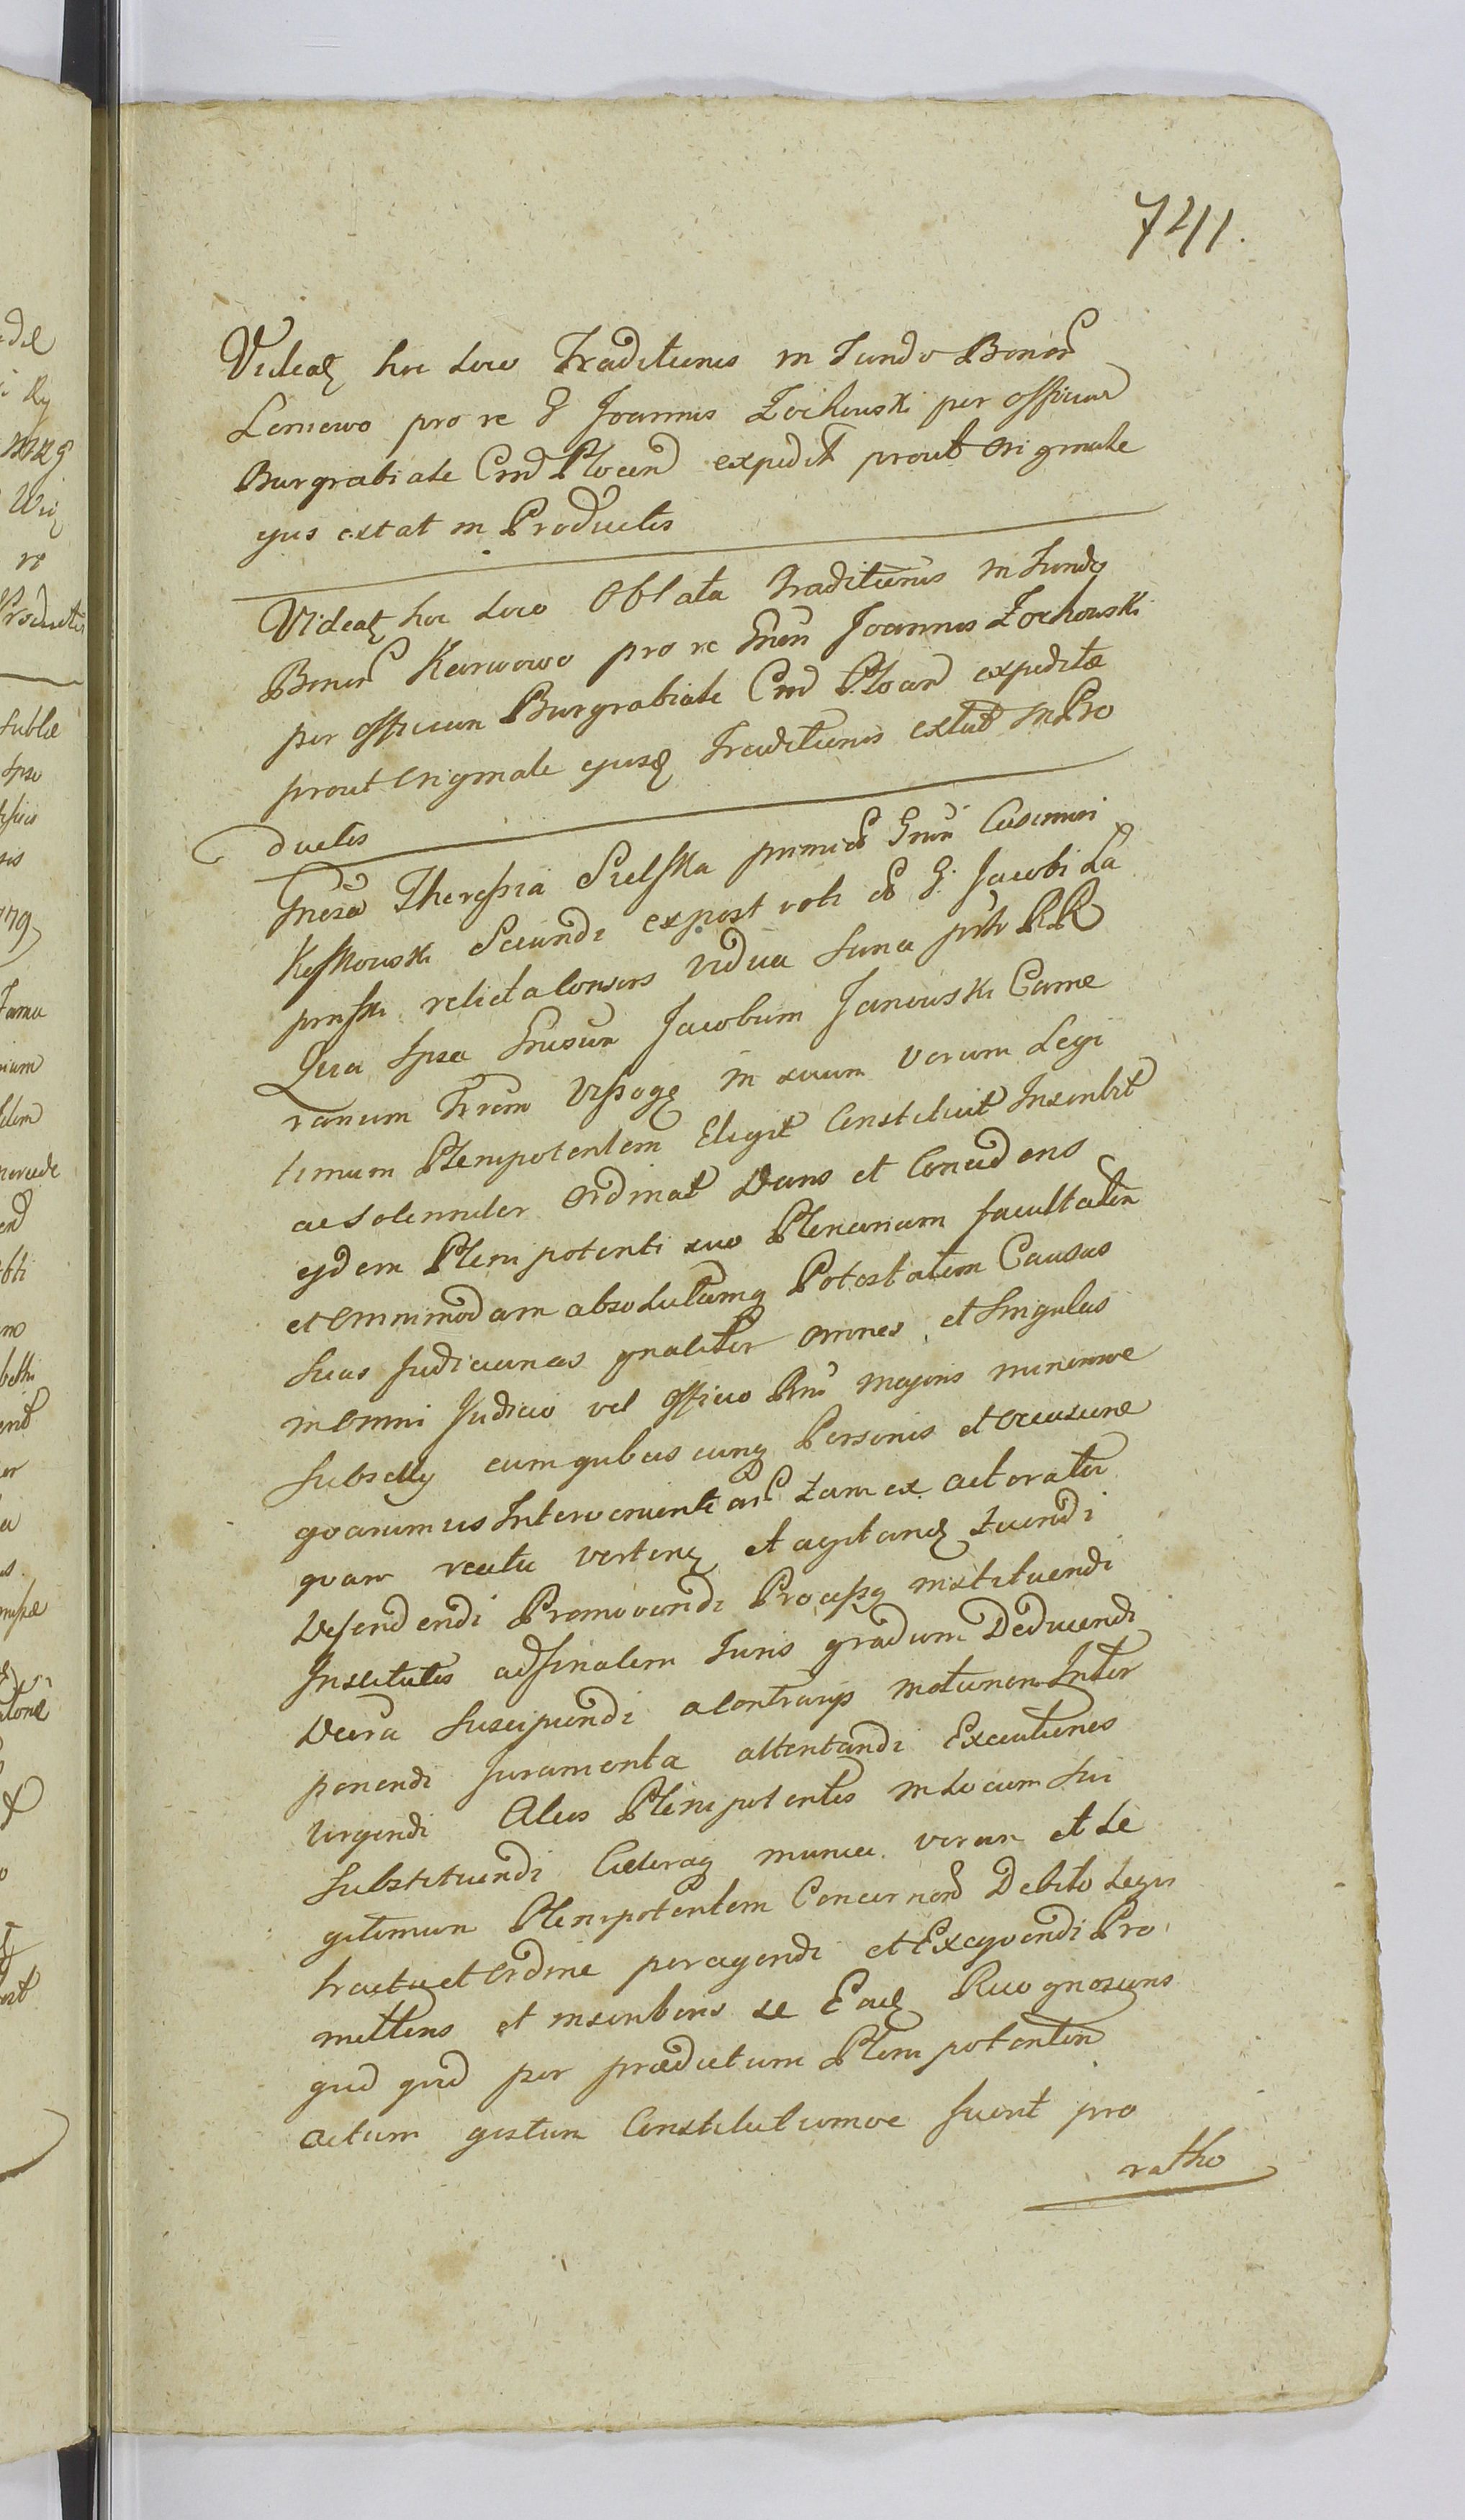 741.
Videat hoc Loco Traditionis in Fundo Bonor
Leniewo pro re G Joannis Żochowski per officium
Burgrabiale Cas Plocen expedit prout Originale
ejus extat in Productis
Videat hoc Loco Oblata Traditionis in Fundo
Bonor Karwowo pro re Gnen Joannis Żochowski
per officium Burgrabiale Plocen expeditæ
prout Originale ejusq Traditionis extat in Pro
ductis
Gnesa Theressia Sielska primi Gnen Casimiri
secundi expost voti G. Jacobi La
relicta Consors vidua sana pnte RR
Quia Ipsa Gnosum Jacobum Janowski Came
rarium Trrem Vissoge in suum verum Legi
timum Plenipotentem Eligit Constituit Inscribit
ac Solenniter Ordinat Dans et Concedens
ejdem Plenipotenti suo Plenariam facultatem
et omnimodam absolutamq Potestatem Causas
suas Judiciarias gnaliter omnes et singulas
in omni Judicio vel officio Rni majoris minorisve
subselly cum quibus cunq Personis et occasione
qvarumvis Intervenientiar tam ex actoratu
qvam reatu verten et agitan tuendi
Defendendi Promovendi Processq instituendi
Institutis ad finalem Juris gradum Deducendi
Decra suscipiendi a Contrarys motionem Inter
ponendi Juramenta attentandi Executiones
urgendi Alios Plenipotentes in Locum sui
substituendi Cæteraq munia verum et Le
gitimum Plenipotentem Concernen Debito Legis
tractu et ordine peragendi et Exeqvendi Pro
mittens et inscribens se Ead Recognoscens
qvid qvid per prædictum Plenipotentem
actum gestum Constitutumve fuerit pro
ratho